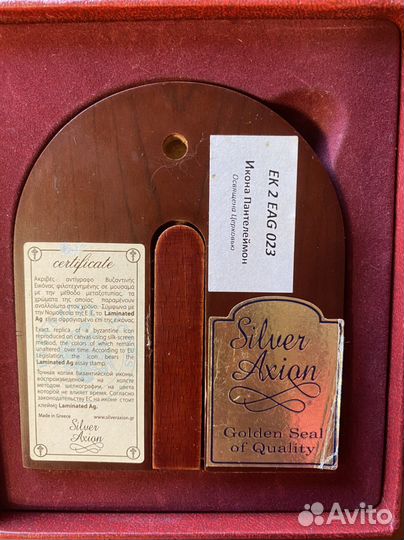 certificate
Ακριβές αντίγραφο Βυζαντινής
Εικόνας φιλοτεχνημένης σε μουσαμά
με την μέθοδο μεταξοτυπίας, τα
χρώματα της οποίας παραμένουν
αναλλοίωτα στον χρόνο. Σύμφωνα με
την Νομοθεσία της Ε.Ε, το Laminated
Ag είναι σφραγισμένο επί της εικόνος.
Exact replica of a byzantine icon
reproduced on canvas using silk-screen
method, the colors of which remain
unaltered over time. According to EU
Legislation, the icon bears the
Laminated Ag assay stamp.
Точная копия византийской иконы,
воспроизведенной на холсте
методом шелкографии, на цвета
которой не влияет время. Согласно
законодательству ЕС на иконе стоит
клеймо Laminated Ag.
Made in Greece
www.silveraxion.gr
Silver
Axion
EK 2 EAG 023
Икона Пантелеймон
Освящена Церковью
Silver
Axion
Golden Seal
of Quality
Avito